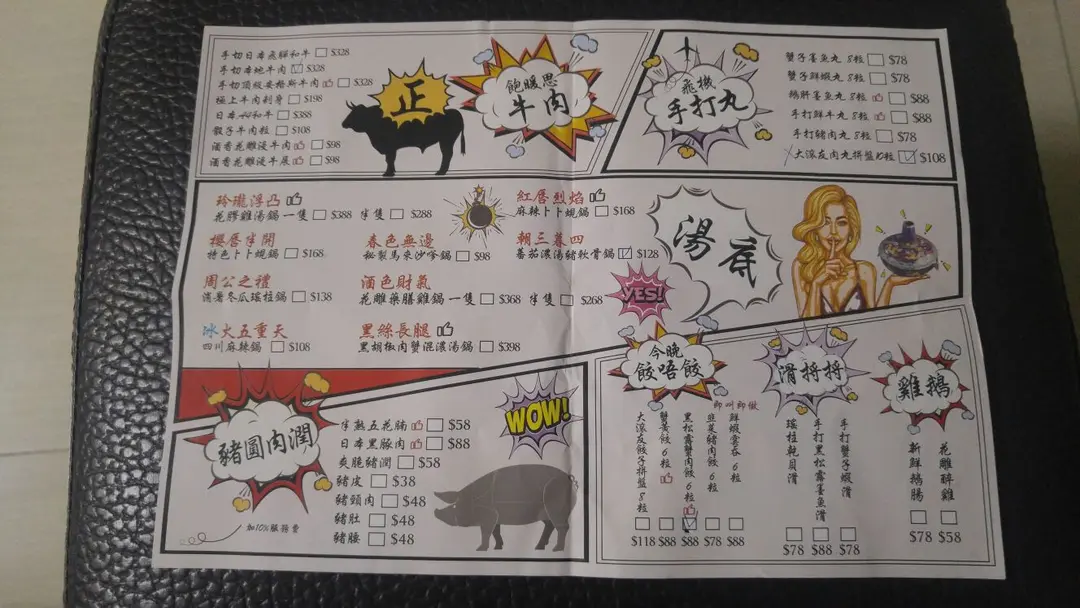 手切日本飛驒和牛 $328
手切本地牛肉 $328
手切頂級安格斯牛肉 $328
極上牛肉刺身 $198
日本和牛 $388
骰子牛肉粒 $108
酒香花雕浸牛肉 $98
酒香花雕浸牛展 $98
正
飽暖思
牛肉
飛機
手打丸
蟹子墨魚丸 8粒 $78
蟹子鮮蝦丸 8粒 $78
鵝肝墨魚丸 8粒 $88
手打鮮牛丸 8粒 $88
手打豬肉丸 8粒 $78
大滾友肉丸拼盤 15粒 $108
玲瓏浮凸
花膠雞湯鍋 一隻 $388 半隻 $288
紅唇烈焰
麻辣卜卜蜆鍋 $168
櫻唇半開
特色卜卜蜆鍋 $168
春色無邊
秘製馬來沙嗲鍋 $98
朝三暮四
蕃茄濃湯豬軟骨鍋 $128
周公之禮
消暑冬瓜瑤柱鍋 $138
酒色財氣
花雕藥膳雞鍋 一隻 $368 半隻 $268
冰火五重天
四川麻辣鍋 $108
黑絲長腿
黑胡椒肉蟹混濃湯鍋 $398
湯底
YES!
豬圓肉潤
加10%服務費
半熟五花腩 $58
日本黑豚肉 $88
爽脆豬潤 $58
豬皮 $38
豬頸肉 $48
豬肚 $48
豬膶 $48
WOW!
今晚
餃唔餃
即叫即做
大滾友餃子拼盤 8粒 $118
蟹黃餃 6粒 $88
黑松露蟹肉餃 6粒 $88
韮菜豬肉餃 6粒 $78
鮮蝦雲吞 6粒 $88
滑捋捋
瑤柱乾貝滑 $78
手打黑松露墨魚滑 $88
手打蟹子蝦滑 $78
雞鵝
新鮮鵝腸 $78
花雕醉雞 $58